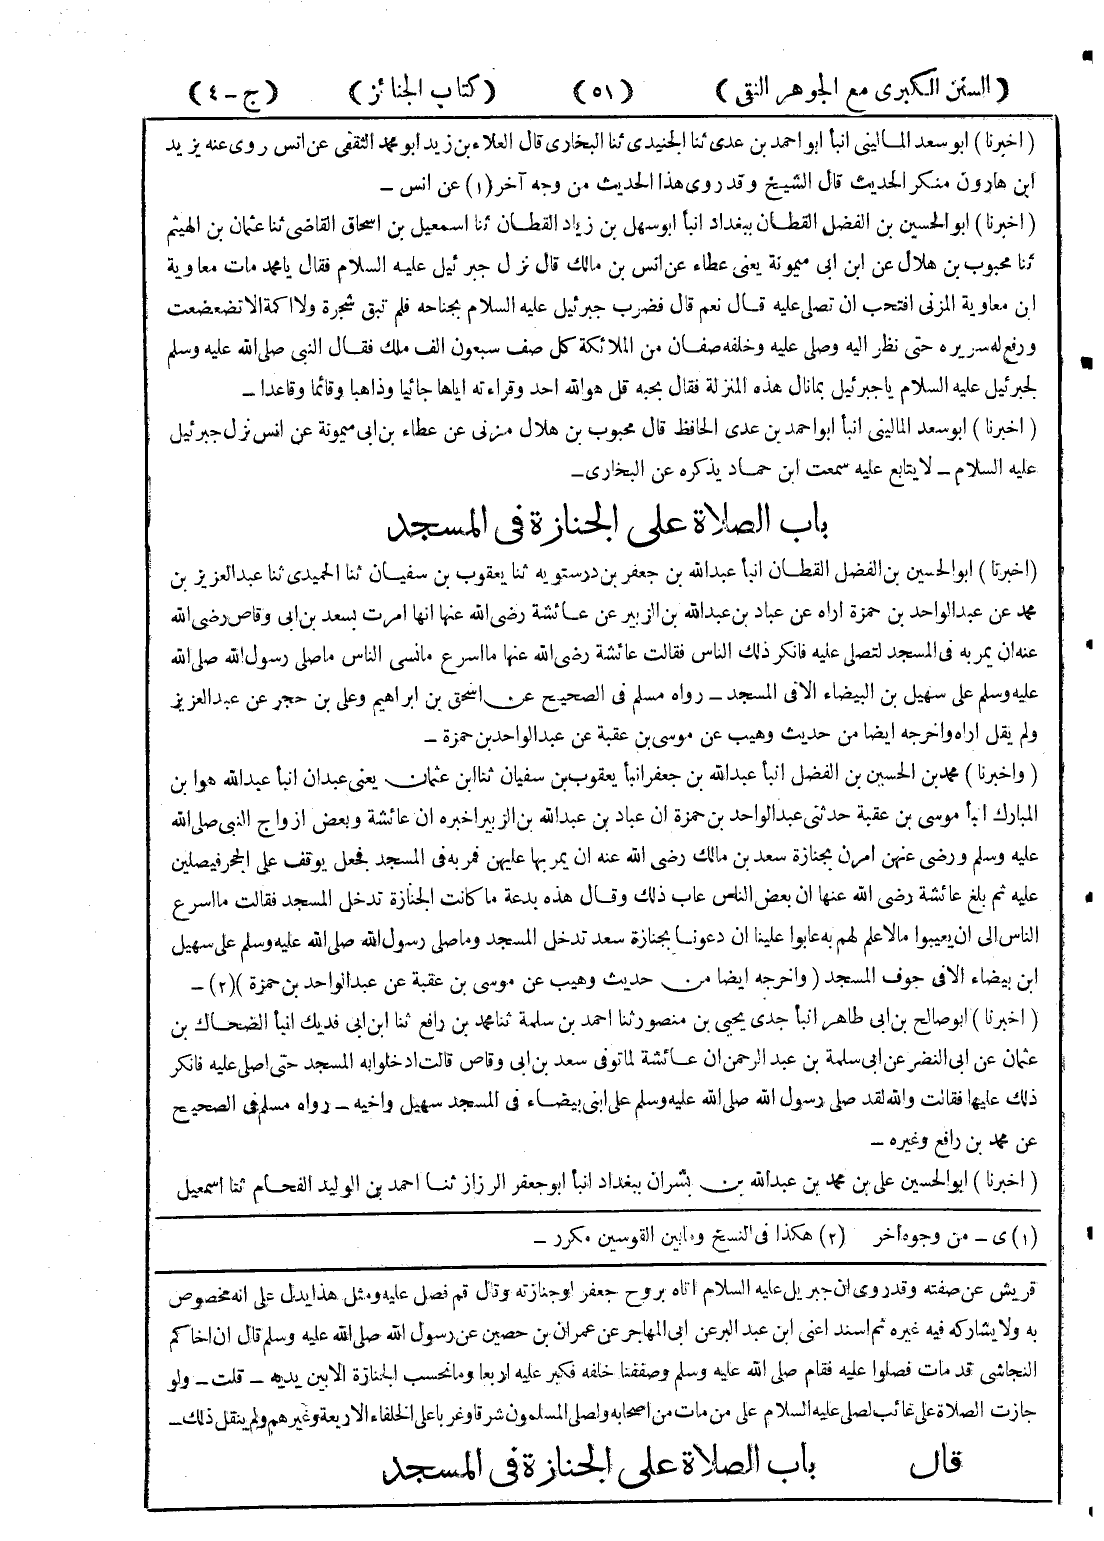 (السنن الكبرى مع الجوهر النقى) (٥١) (كتاب الجنائز) (ج-٤)
(اخبرنا) ابوسعد المالينى انبأ ابو احمد بن عدى ثنا الجنيدى ثنا البخارى قال العلاء بن زيد ابو محمد الثقفى عن انس روى عنه يزيد
ابن هارون منكر الحديث قال الشيخ وقد روى هذا الحديث من وجه آخر (١) عن انس -
(اخبرنا) ابو الحسين بن الفضل القطان ببغداد انبأ ابوسهل بن زياد القطان ثنا اسمعيل بن اسحاق القاضى ثنا عثمان بن الهيثم
ثنا محبوب بن هلال عن ابن ابى ميمونة يعنى عطاء عن انس بن مالك قال نزل جبرئيل عليه السلام فقال يا محمد مات معاوية
ابن معاوية المزنى افتحب ان تصلى عليه قال نعم قال فضرب جبرئيل عليه السلام بجناحه فلم تبق شجرة ولا اكمة الا تضعضعت
ورفع له سريره حتى نظر اليه وصلى عليه وخلفه صفان من الملائكة كل صف سبعون الف ملك فقال النبى صلى الله عليه وسلم
لجبرئيل عليه السلام يا جبرئيل بما نال هذه المنزلة فقال بحبه قل هو الله احد وقراءته اياها جائيا وذاهبا وقائما وقاعدا -
(اخبرنا) ابوسعد المالينى انبأ ابواحمد بن عدى الحافظ قال محبوب بن هلال مزنى عن عطاء بن ابى ميمونة عن انس نزل جبرئيل
عليه السلام - لا يتابع عليه سمعت ابن حماد يذكره عن البخارى -
باب الصلاة على الجنازة فى المسجد
(اخبرنا) ابوالحسين بن الفضل القطان انبأ عبدالله بن جعفر بن درستويه ثنا يعقوب بن سفيان ثنا الحميدى ثنا عبدالعزيز بن
محمد عن عبدالواحد بن حمزة اراه عن عباد بن عبدالله بن الزبير عن عائشة رضى الله عنها انها امرت بسعد بن ابى وقاص رضى الله
عنه ان يمر به فى المسجد لتصلى عليه فانكر ذلك الناس فقالت عائشة رضى الله عنها ما اسرع مانسى الناس ماصلى رسول الله صلى الله
عليه وسلم على سهيل بن البيضاء الا فى المسجد - رواه مسلم فى الصحيح عن اسحق بن ابراهيم وعلى بن حجر عن عبدالعزيز
ولم يقل اراه واخرجه ايضا من حديث وهيب عن موسى بن عقبة عن عبدالواحد بن حمزة -
(واخبرنا) محمد بن الحسين بن الفضل انبأ عبدالله بن جعفر انبأ يعقوب بن سفيان ثنا ابن عثمان يعنى عبدان انبأ عبدالله هو ابن
المبارك انبأ موسى بن عقبة حدثنى عبدالواحد بن حمزة ان عباد بن عبدالله بن الزبير اخبره ان عائشة وبعض ازواج النبى صلى الله
عليه وسلم ورضى عنهن امرن بجنازة سعد بن مالك رضى الله عنه ان يمر بها عليهن فمر به فى المسجد فجعل يوقف على الحجر فيصلين
عليه ثم بلغ عائشة رضى الله عنها ان بعض الناس عاب ذلك وقال هذه بدعة ما كانت الجنازة تدخل المسجد فقالت ما اسرع
الناس الى ان يعيبوا مالا علم لهم به عابوا علينا ان دعونا بجنازة سعد تدخل المسجد وماصلى رسول الله صلى الله عليه وسلم على سهيل
ابن بيضاء الا فى جوف المسجد (واخرجه ايضا من حديث وهيب عن موسى بن عقبة عن عبدالواحد بن حمزة)(٢) -
(اخبرنا) ابوصالح بن ابى طاهر انبأ جدى يحيى بن منصور ثنا احمد بن سلمة ثنا محمد بن رافع ثنا ابن ابى فديك انبأ الضحاك بن
عثمان عن ابى النضر عن ابى سلمة بن عبد الرحمن ان عائشة لما توفى سعد بن ابى وقاص قالت ادخلوا به المسجد حتى اصلى عليه فانكر
ذلك عليها فقالت والله لقد صلى رسول الله صلى الله عليه وسلم على ابنى بيضاء فى المسجد سهيل واخيه - رواه مسلم فى الصحيح
عن محمد بن رافع وغيره -
(اخبرنا) ابوالحسين على بن محمد بن عبدالله بن بشران ببغداد انبأ ابو جعفر الرزاز ثنا احمد بن الوليد الفحام ثنا اسمعيل
(١) ى - من وجوه أخر (٢) هكذا فى النسخ وما بين القوسين مكرر -
قريش عن صفته وقد روى ان جبريل عليه السلام اتاه بروح جعفر او جنازته وقال قم فصل عليه ومثل هذا يدل على انه مخصوص
به ولا يشاركه فيه غيره ثم اسند اعنى ابن عبد البر عن ابى المهاجر عن عمران بن حصين عن رسول الله صلى الله عليه وسلم قال ان اخاكم
النجاشى قد مات فصلوا عليه فقام صلى الله عليه وسلم وصففنا خلفه فكبر عليه اربعا ومانحسب الجنازة الا بين يديه - قلت - ولو
جازت الصلاة على غائب لصلى عليه السلام على من مات من اصحابه ولصلى المسلمون شرقا وغربا على الخلفاء الاربعة وغيرهم ولم ينقل ذلك -
قال باب الصلاة على الجنازة فى المسجد